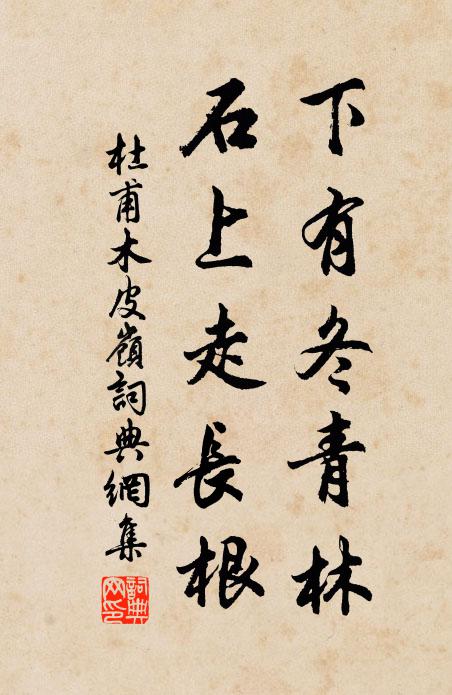 下有冬青林
石上走長根
杜甫木皮嶺詞典網集
詞典網印